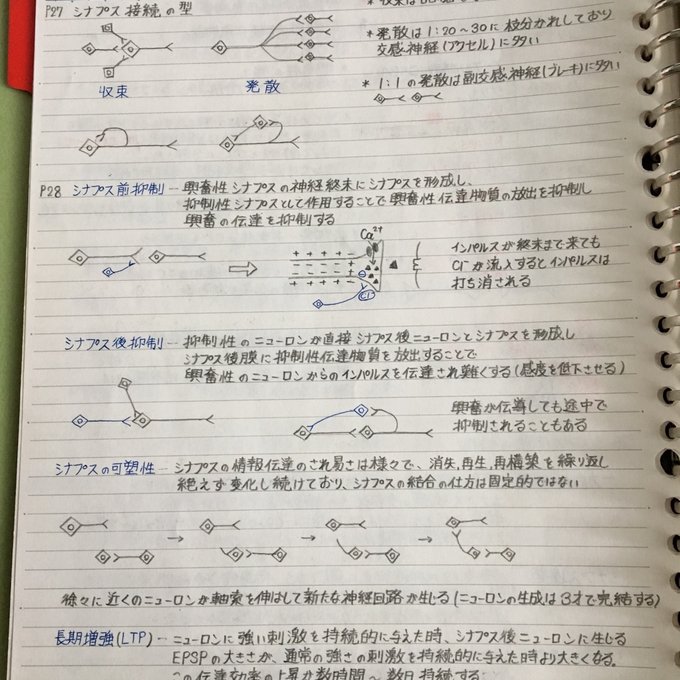 P27 シナプス接続の型
* 発散は1:20～30に枝分かれしており
交感神経(アクセル)に多い
収束
発散
* 1:1の発散は副交感神経(ブレーキ)に多い
P28 シナプス前抑制… 興奮性シナプスの神経終末にシナプスを形成し、
抑制性シナプスとして作用することで興奮性伝達物質の放出を抑制し
興奮の伝達を抑制する
Ca²⁺
Cl⁻
インパルスが終末まで来ても
Cl⁻が流入するとインパルスは
打ち消される
シナプス後抑制… 抑制性のニューロンが直接シナプス後ニューロンとシナプスを形成し
シナプス後膜に抑制性伝達物質を放出することで
興奮性のニューロンからのインパルスを伝達され難くする(感度を低下させる)
興奮が伝導しても途中で
抑制されることもある
シナプスの可塑性… シナプスの情報伝達のされ易さは様々で、消失,再生,再構築を繰り返し
絶えず変化し続けており、シナプスの結合の仕方は固定的ではない
徐々に近くのニューロンが軸索を伸ばして新たな神経回路が生じる(ニューロンの生成は3才で完結する)
長期増強(LTP)… ニューロンに強い刺激を持続的に与えた時、シナプス後ニューロンに生じる
EPSPの大きさが、通常の強さの刺激を持続的に与えた時より大きくなる。
この伝達効率の上昇が数時間～数日持続する